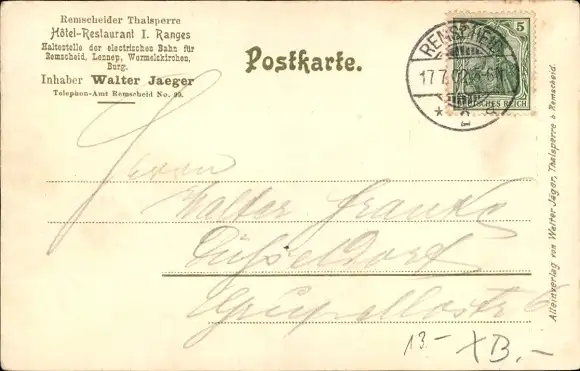 Remscheider Thalsperre
Hôtel-Restaurant I. Ranges
Haltestelle der electrischen Bahn für
Remscheid, Lennep, Wermelskirchen,
Burg.
Inhaber Walter Jaeger
Telephon-Amt Remscheid No. 99.
Postkarte.
REMSCHEID
17.7.
5
DEUTSCHES REICH
Herrn
Walter Franke
Düsseldorf
Grupellostr 6
13- XB.-
Alleinverlag von Walter Jäger, Thalsperre b. Remscheid.